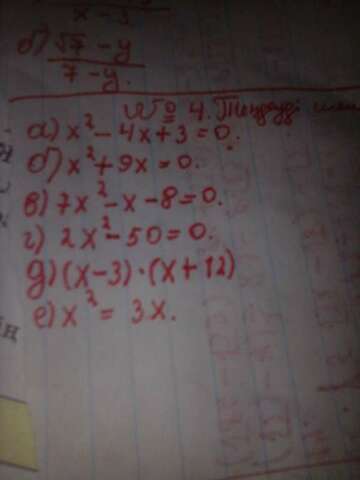 x - 3
б) √7 - y
7 - y.
№ 4. Теңдеуді
а) x² - 4x + 3 = 0.
б) x² + 9x = 0.
в) 7x² - x - 8 = 0.
г) 2x² - 50 = 0.
д) (x - 3) · (x + 12)
е) x² = 3x.